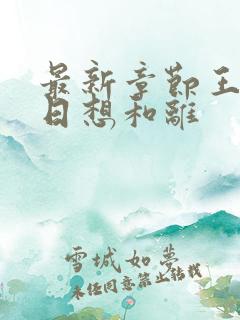 最新章节王
日想和離
雪城如夢
未经同意禁止转载